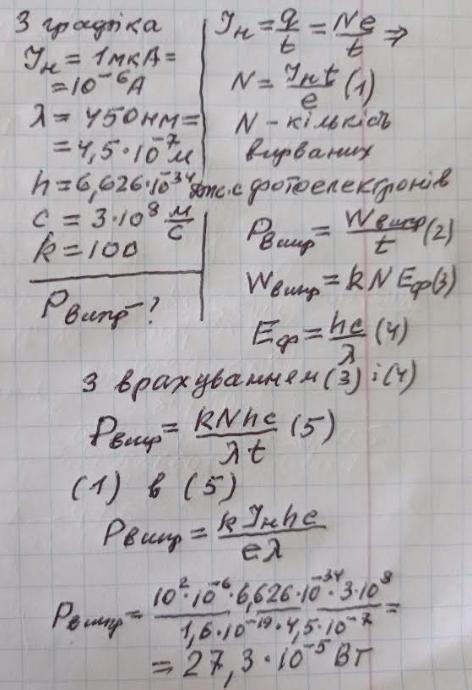 З графіка
Iн = 1мкА =
= 10⁻⁶А
λ = 450нм =
= 4,5·10⁻⁷м
h = 6,626·10⁻³⁴ Дж·с
c = 3·10⁸ м/с
k = 100
Pвипр - ?
Iн = q/t = Ne/t ⇒
N = Iнt/e (1)
N - кількість
вирваних
фотоелектронів
Pвипр = Wвипр/t (2)
Wвипр = kNEф (3)
Eф = hc/λ (4)
З врахуванням (3) і (4)
Pвипр = kNhc/λt (5)
(1) в (5)
Pвипр = kIнhc/eλ
Pвипр = 10²·10⁻⁶·6,626·10⁻³⁴·3·10⁸/1,6·10⁻¹⁹·4,5·10⁻⁷ =
= 27,3·10⁻⁵ Вт